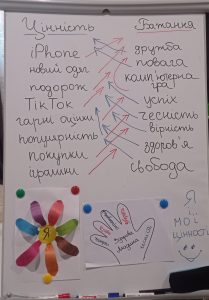 Цінність
iPhone
новий одяг
подорож
TikTok
гарні оцінки
популярність
покупки
іграшки
Бажання
дружба
повага
комп'ютерна
гра
успіх
чесність
вірність
здоров'я
свобода
Я
Я
і
мої
цінності